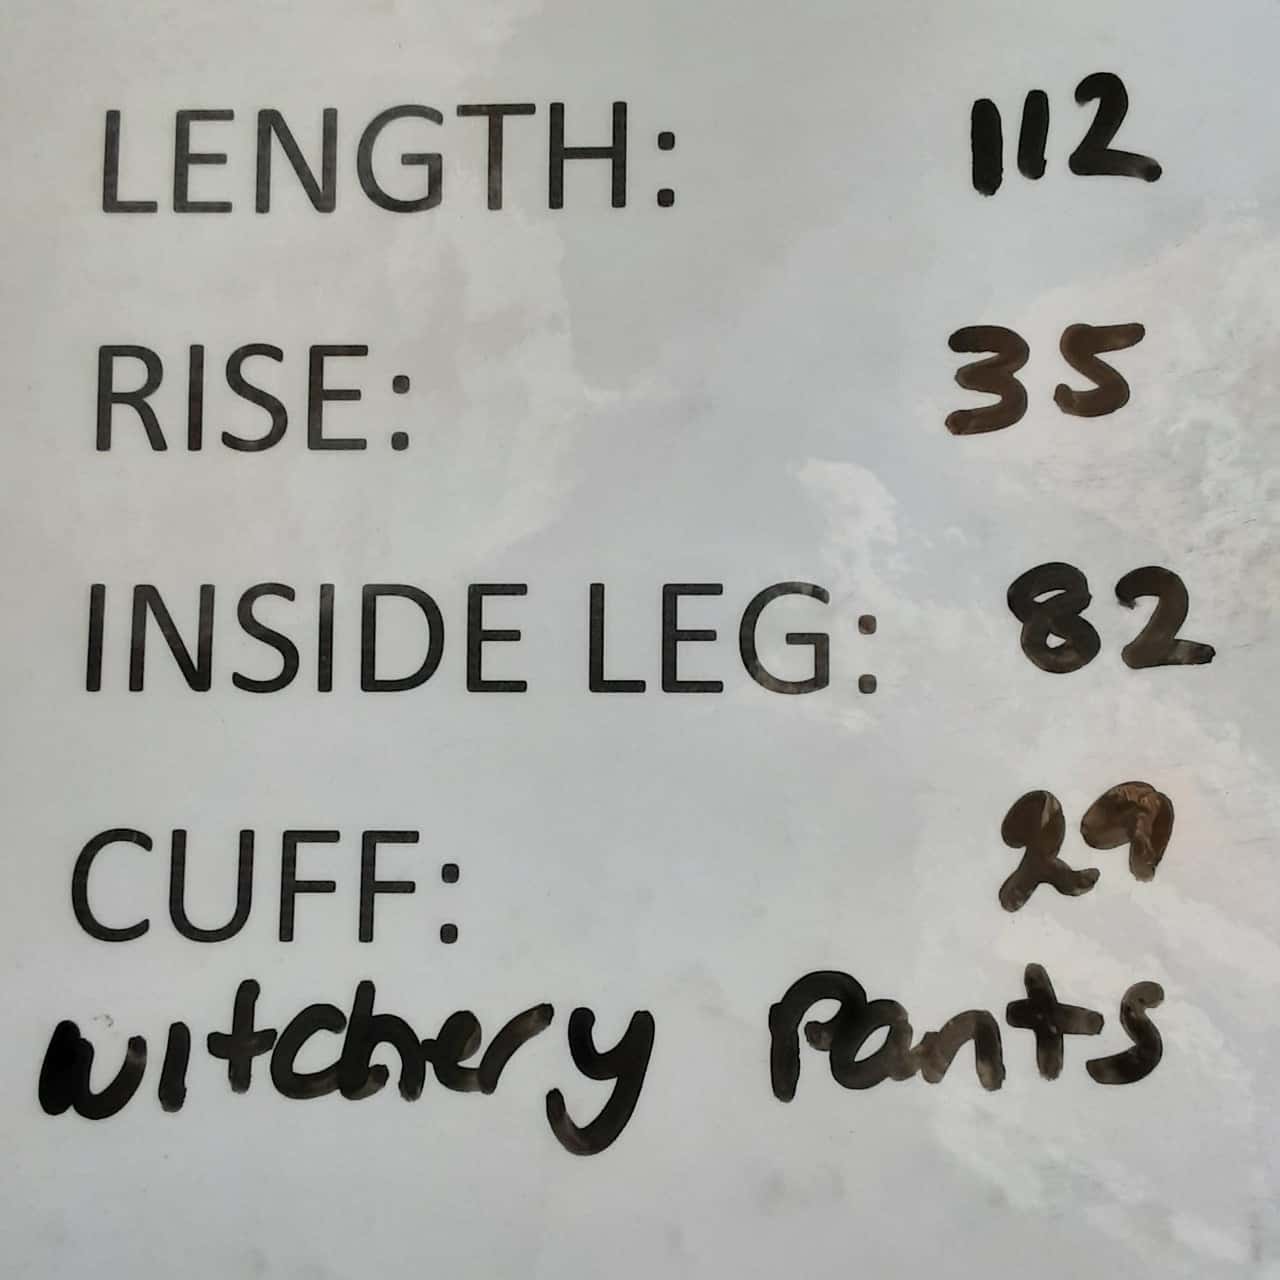 LENGTH: 112
RISE: 35
INSIDE LEG: 82
CUFF: 29
witchery Pants